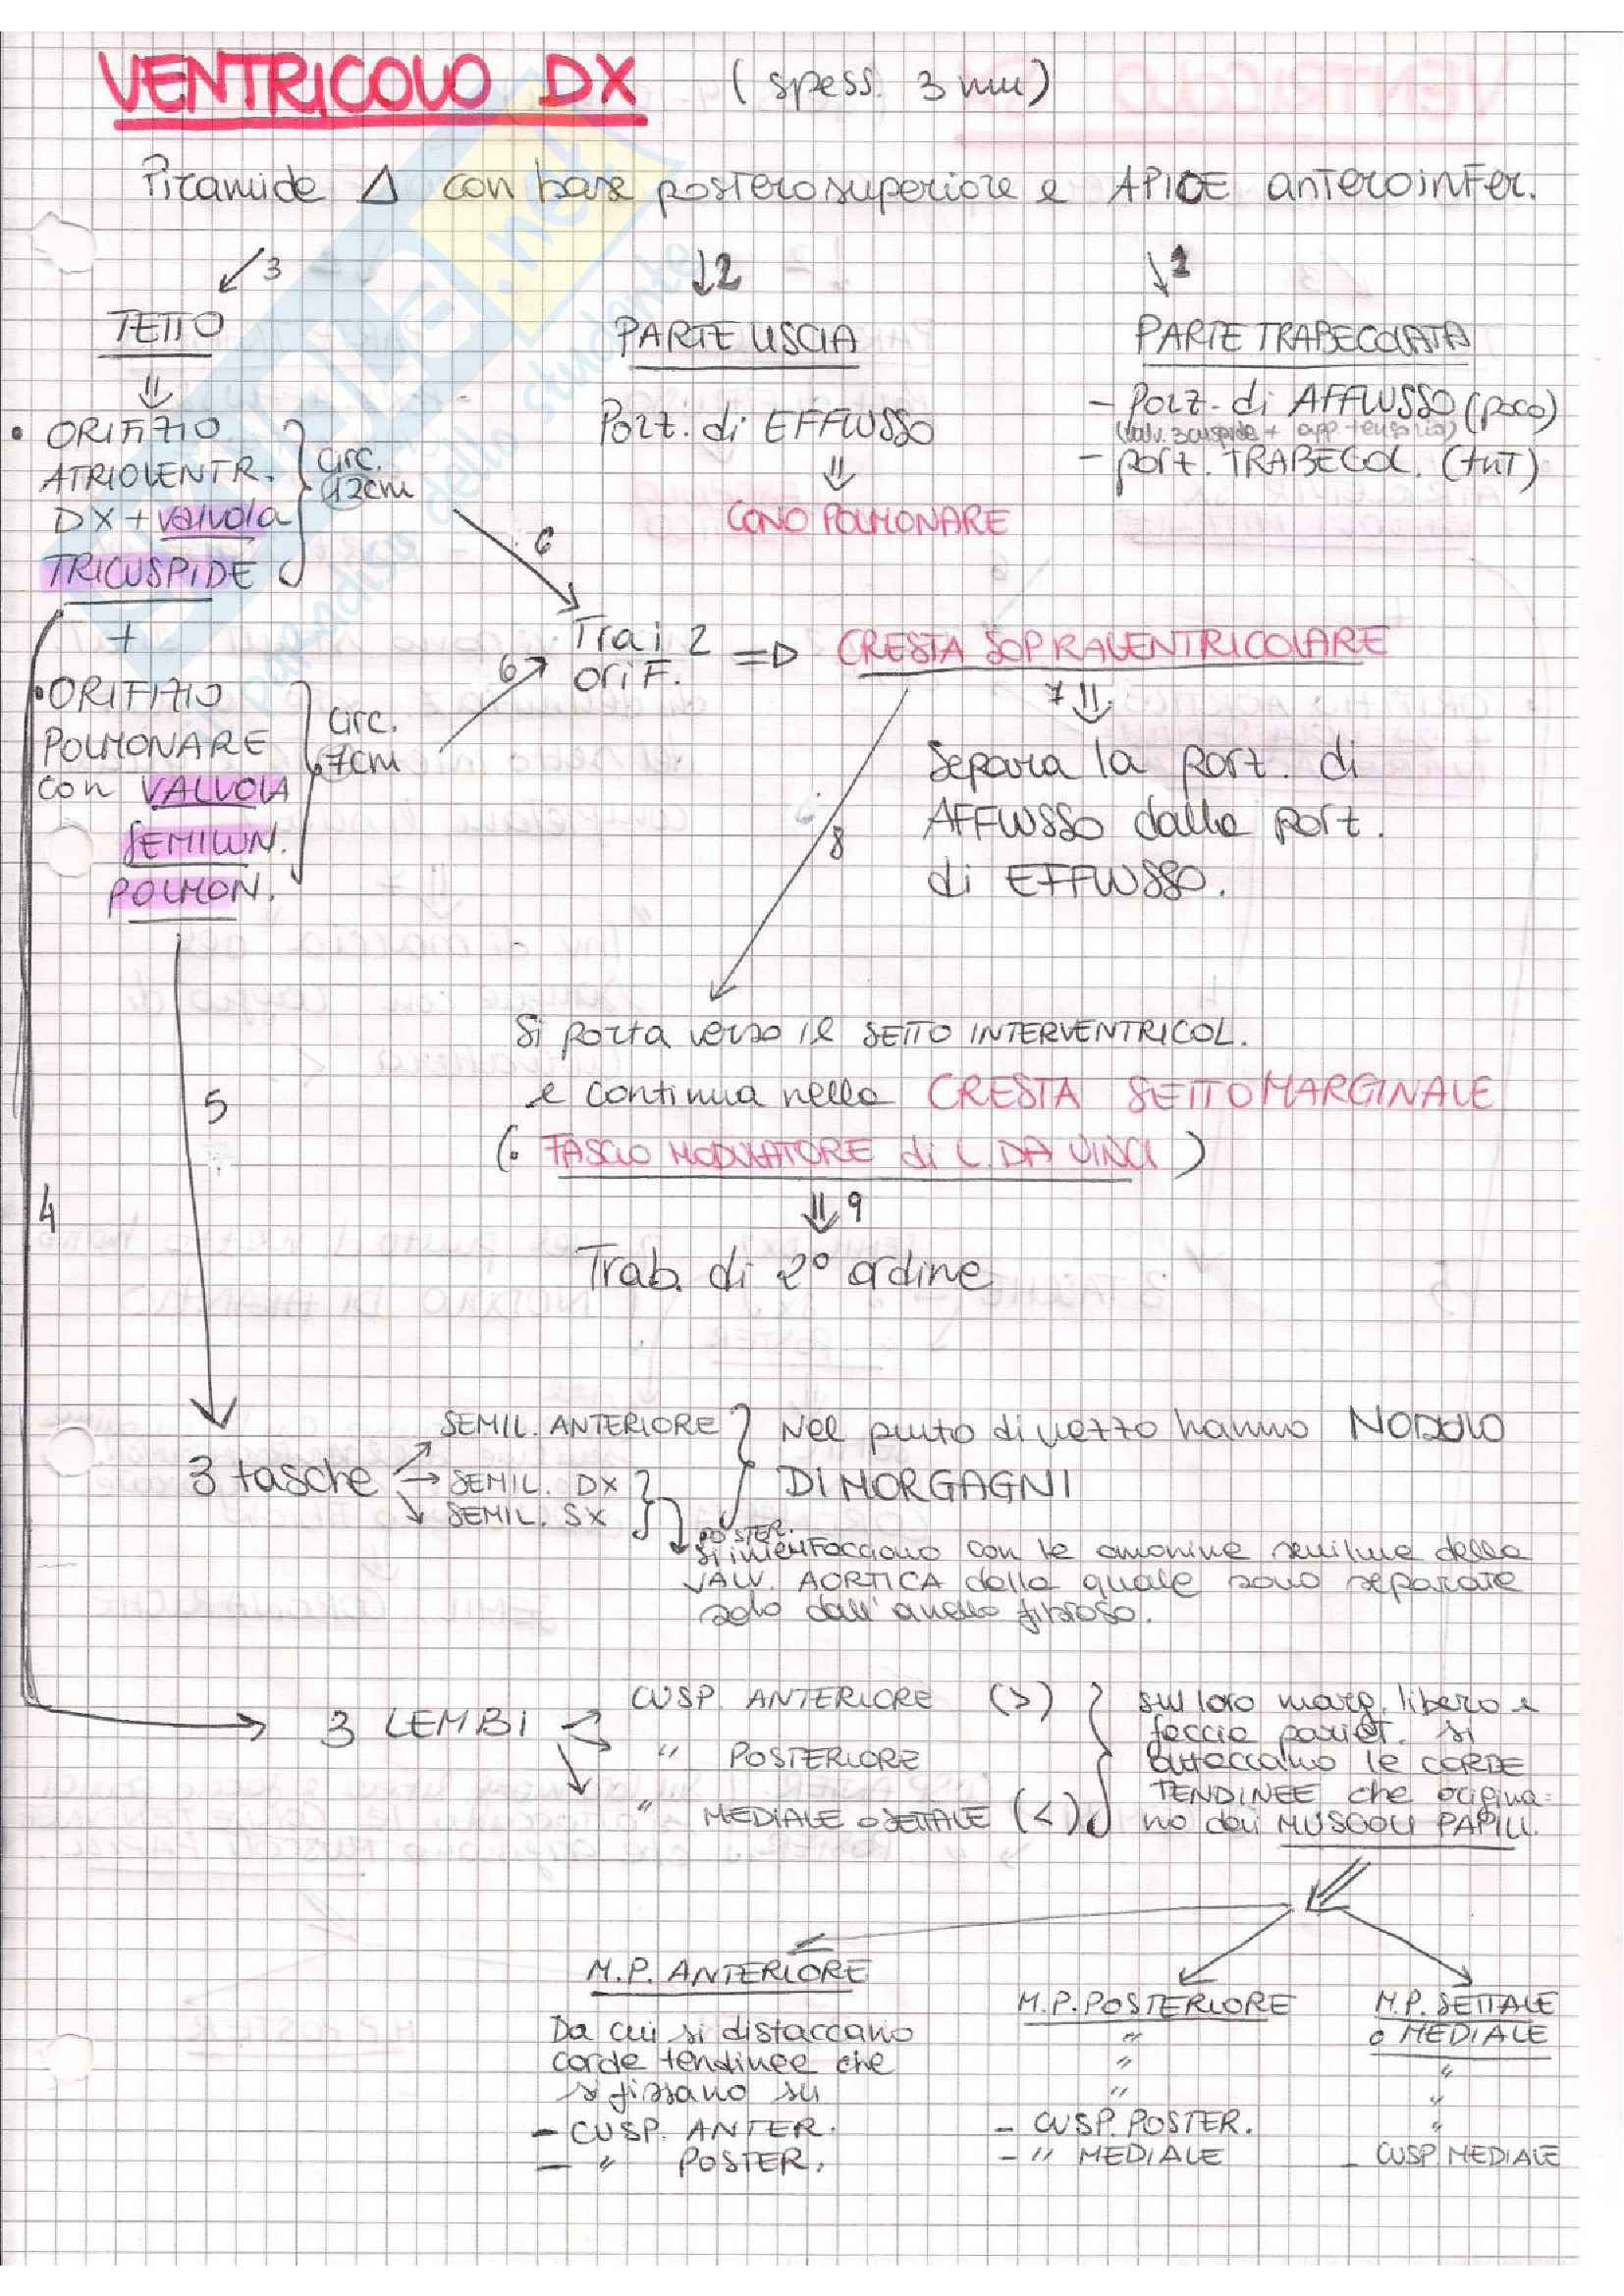 VENTRICOLO DX (spess. 3 mm)
Piramide Δ con base posterosuperiore e APICE anteroinfer.
3
2
1
TETTO
PARTE LISCIA
PARTE TRABECOLATA
• ORIFIZIO
ATRIOVENTR.
DX + valvola
TRICUSPIDE
circ.
12cm
Porz. di EFFLUSSO
CONO POLMONARE
- Porz. di AFFLUSSO (poco)
(valv. 3cuspide + app. tensorio)
- porz. TRABECOL. (tnt)
+
6
6
Tra i 2
orif.
=> CRESTA SOPRAVENTRICOLARE
• ORIFIZIO
POLMONARE
con VALVOLA
SEMILUN.
POLMON.
circ.
7cm
7
Separa la porz. di
AFFLUSSO dalla porz.
di EFFLUSSO.
8
Si porta verso il SETTO INTERVENTRICOL.
e continua nella CRESTA SETTOMARGINALE
(• FASCIO MODULATORE di L. DA VINCI)
5
4
9
Trab. di 2° ordine
3 tasche
SEMIL. ANTERIORE
SEMIL. DX
SEMIL. SX
Nel punto di mezzo hanno NODULO
DI MORGAGNI
POSTER.
si interfacciano con le omonime semilune della
VALV. AORTICA dalla quale sono separate
solo dall'anello fibroso.
3 LEMBI
CUSP. ANTERIORE (>)
" POSTERIORE
" MEDIALE o SETTALE (<)
sul loro marg. libero e
faccia pariet. si
attaccano le CORDE
TENDINEE che origina-
no dai MUSCOLI PAPILL.
M.P. ANTERIORE
Da cui si distaccano
corde tendinee che
si fissano su
- CUSP. ANTER.
- " POSTER.
M.P. POSTERIORE
"
"
"
- CUSP. POSTER.
- " MEDIALE
M.P. SETTALE
o MEDIALE
"
"
"
- CUSP. MEDIALE